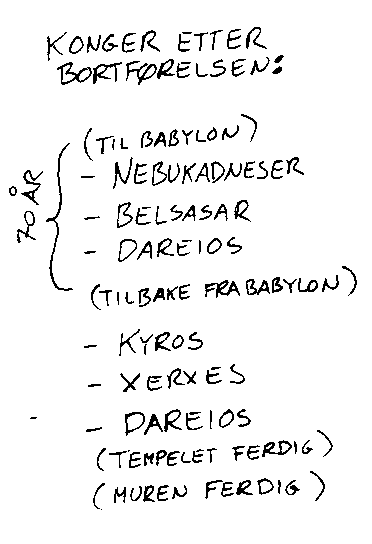 KONGER ETTER
BORTFØRELSEN:
70 ÅR
(TIL BABYLON)
- NEBUKADNESER
- BELSASAR
- DAREIOS
(TILBAKE FRA BABYLON)
- KYROS
- XERXES
- DAREIOS
(TEMPELET FERDIG)
(MUREN FERDIG)